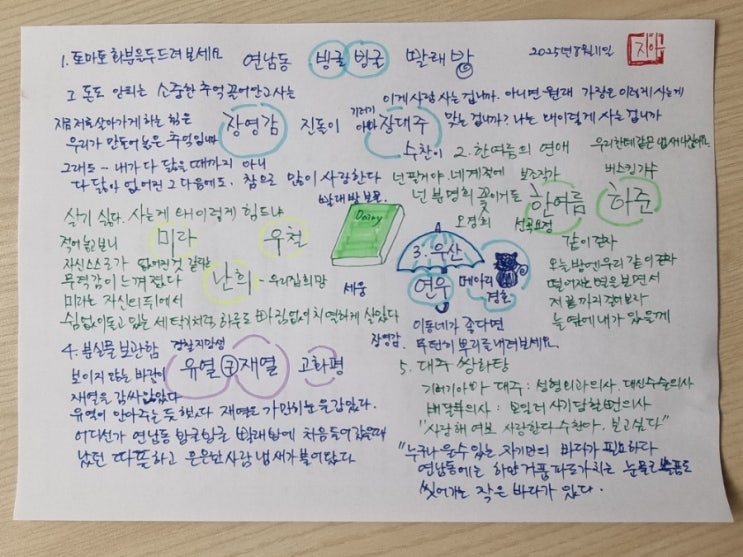 1. 토마토 화분을 두드려 보세요
연남동 빙글빙글 빨래방
2025년 8월 11일
지아
그 돈도 안되는 소중한 추억 끌어안고 사는
지금 저를 살아가게 하는 힘은
우리가 만들어 놓은 추억입니다
장영감 진돌이 기러기 아빠 장대주
수찬이
이게 사람 사는 겁니까. 아니면 원래 가장은 이렇게 사는게
맞는 겁니까? 나는 왜 이렇게 사는 겁니까
그래도 - 내가 다 닳을 때까지 아니
다 닳아 없어진 그 다음에도. 참으로 많이 사랑한다
빨래방 보물
2. 한여름의 연애
우리한테 같은 냄새
넌 필거야. 네 계절에
넌 분명히 꽃이거든
보조작가
한여름
버스킹 가수
하준
오경희
같이 걷자
오늘 밤엔 우리 같이 걷자
떨어지는 연을 보면서
저 끝까지 걸어보자
늘 옆에 내가 있을게
살기 싫다. 사는게 왜 이렇게 힘드냐
적어 놓고 보니
자신 스스로가 없어진 것 같아
무력감이 느껴졌다
미라 우철
난희 우리집 희망
세웅
미라는 자신의 뒤에서
쉼없이 돌고 있는 세탁기처럼 하루도 빠짐없이 치열하게 살았다
Dairy
3. 우산
연우 메아리
경호
이 동네가 좋다면
무던히 뿌리를 내려보세요.
장영감
4. 분실물 보관함
경찰지망생
유열 구재열 고화평
보이지 않는 바람이
재열을 감싸 안았다
유열이 안아주는 듯했다 재열은 가만히 눈을 감았다.
어디선가 연남동 빙글빙글 빨래방에 처음 들어갔을때
났던 따뜻하고 은은한 사람 냄새가 불어왔다
5. 대주 쌍화탕
기러기아빠 대주 : 성형외과의사. 대신수술의사
"사랑해 여보 사랑한다 수찬아. 보고싶다"
"누구나 울 수 있는 자기만의 바다가 필요하다
연남동에는 하얀 거품 파도가 치는 눈물도 슬픔도
씻어가는 작은 바다가 있다.